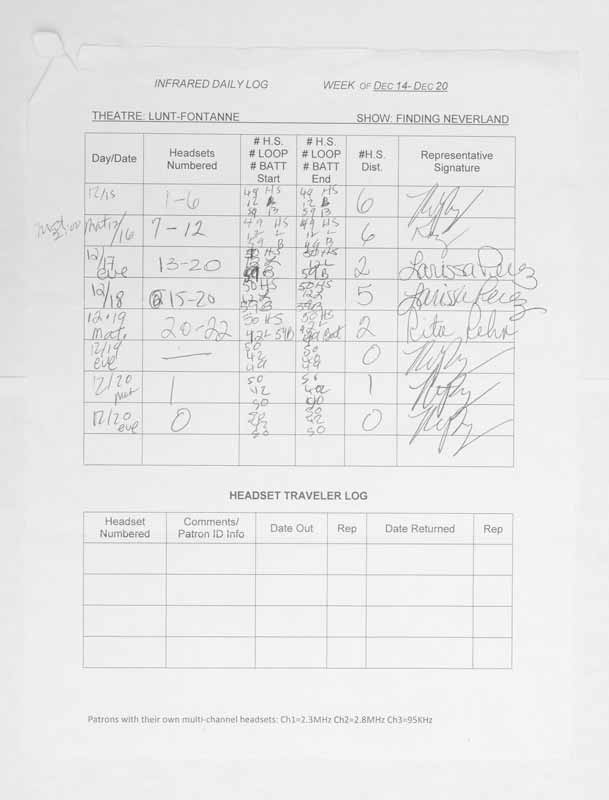 INFRARED DAILY LOG WEEK OF DEC 14- DEC 20
THEATRE: LUNT-FONTANNE SHOW: FINDING NEVERLAND
Day/Date Headsets Numbered # H.S. # LOOP # BATT Start # H.S. # LOOP # BATT End #H.S. Dist. Representative Signature
12/15 1-6 49 HS 12 L 59 B 49 HS 12 B 59 B 6
Mat 12/16 7-12 49 HS 12 L 59 B 49 HS 12 L 49 B 6
12/17 eve 13-20 50 HS 59 B 50 HS 12 L 59 B 2 Larissa Perez
12/18 15-20 50 HS 50 HS 5 Larissa Perez
12.19 Mat. 20-22 50 HS 50 HS Bat 2 Rita Rehn
12/19 eve — 50 42 49 50 42 49 0
12/20 mat 1 50 42 50 50 1
12/20 eve 0 50 50 0
HEADSET TRAVELER LOG
Headset Numbered Comments/ Patron ID Info Date Out Rep Date Returned Rep
Patrons with their own multi-channel headsets: Ch1=2.3MHz Ch2=2.8MHz Ch3=95KHz